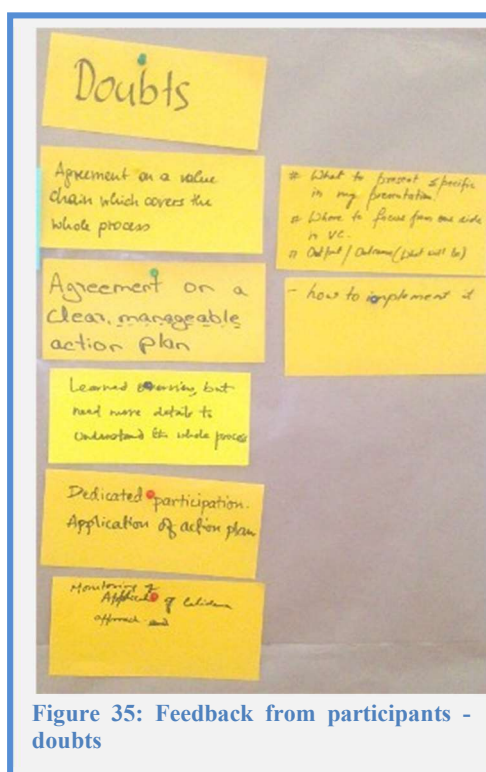 Doubts
Agreement on a value
chain which covers the
whole process
Agreement on a
clear, manageable
action plan
Learned overview, but
need more details to
understand the whole process
Dedicated participation.
Application of action plan
Monitoring of
of
approach and
# What to present specific
in my presentation
# Where to focus from our side
in VC.
# Output / Outcome (what will be)
- how to implement it
Figure 35: Feedback from participants -
doubts